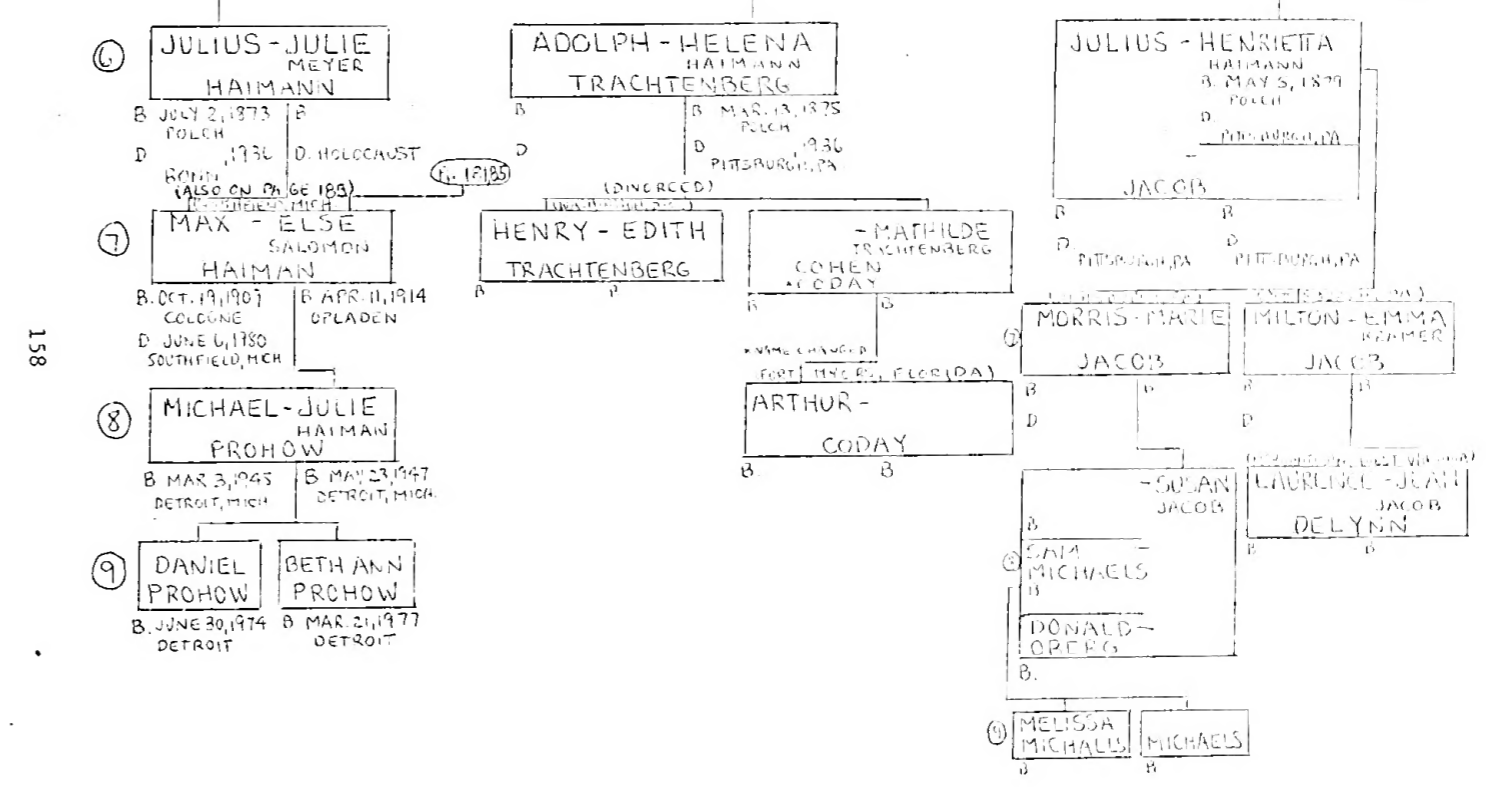 6
JULIUS - JULIE
MEYER
HAIMANN
B JULY 2, 1873
POLCH
D , 1936
BONN
B
D. HOLOCAUST
(ALSO ON PAGE 185)
MAX - ELSE
SALOMON
HAIMAN
7
B. OCT. 19, 1907
COLOGNE
D JUNE 6, 1980
SOUTHFIELD, MCH
B APR. 11, 1914
OPLADEN
8
MICHAEL - JULIE
HAIMAN
PROHOW
B MAR 3, 1945
DETROIT, MICH
B MAY 23, 1947
DETROIT, MICH.
9
DANIEL
PROHOW
B. JUNE 30, 1974
DETROIT
BETH ANN
PROHOW
B MAR. 21, 1977
DETROIT
158
ADOLPH - HELENA
HAIMANN
TRACHTENBERG
B
D
B MAR. 13, 1875
POLCH
D , 1936
PITTSBURGH, PA.
(DIVORCED)
HENRY - EDITH
TRACHTENBERG
B
B
- MATHILDE
TRACHTENBERG
COHEN
*CODAY
B
B
*NAME CHANGED
FORT MYERS, FLORIDA)
ARTHUR -
CODAY
B.
B
JULIUS - HENRIETTA
HAIMANN
B. MAY 5, 1879
POLCH
D.
PITTSBURGH, PA
-
JACOB
B
D.
PITTSBURGH, PA
B
D
PITTSBURGH, PA
7
MORRIS - MARIE
JACOB
B
D
B
MILTON - EMMA
KRAMER
JACOB
B
D
B
- SUSAN
JACOB
B
8
SAM -
MICHAELS
B
DONALD -
OBERG
B.
LAURENCE - JEAN
JACOB
DELYNN
B
B
9
MELISSA
MICHALLS
B
MICHAELS
B